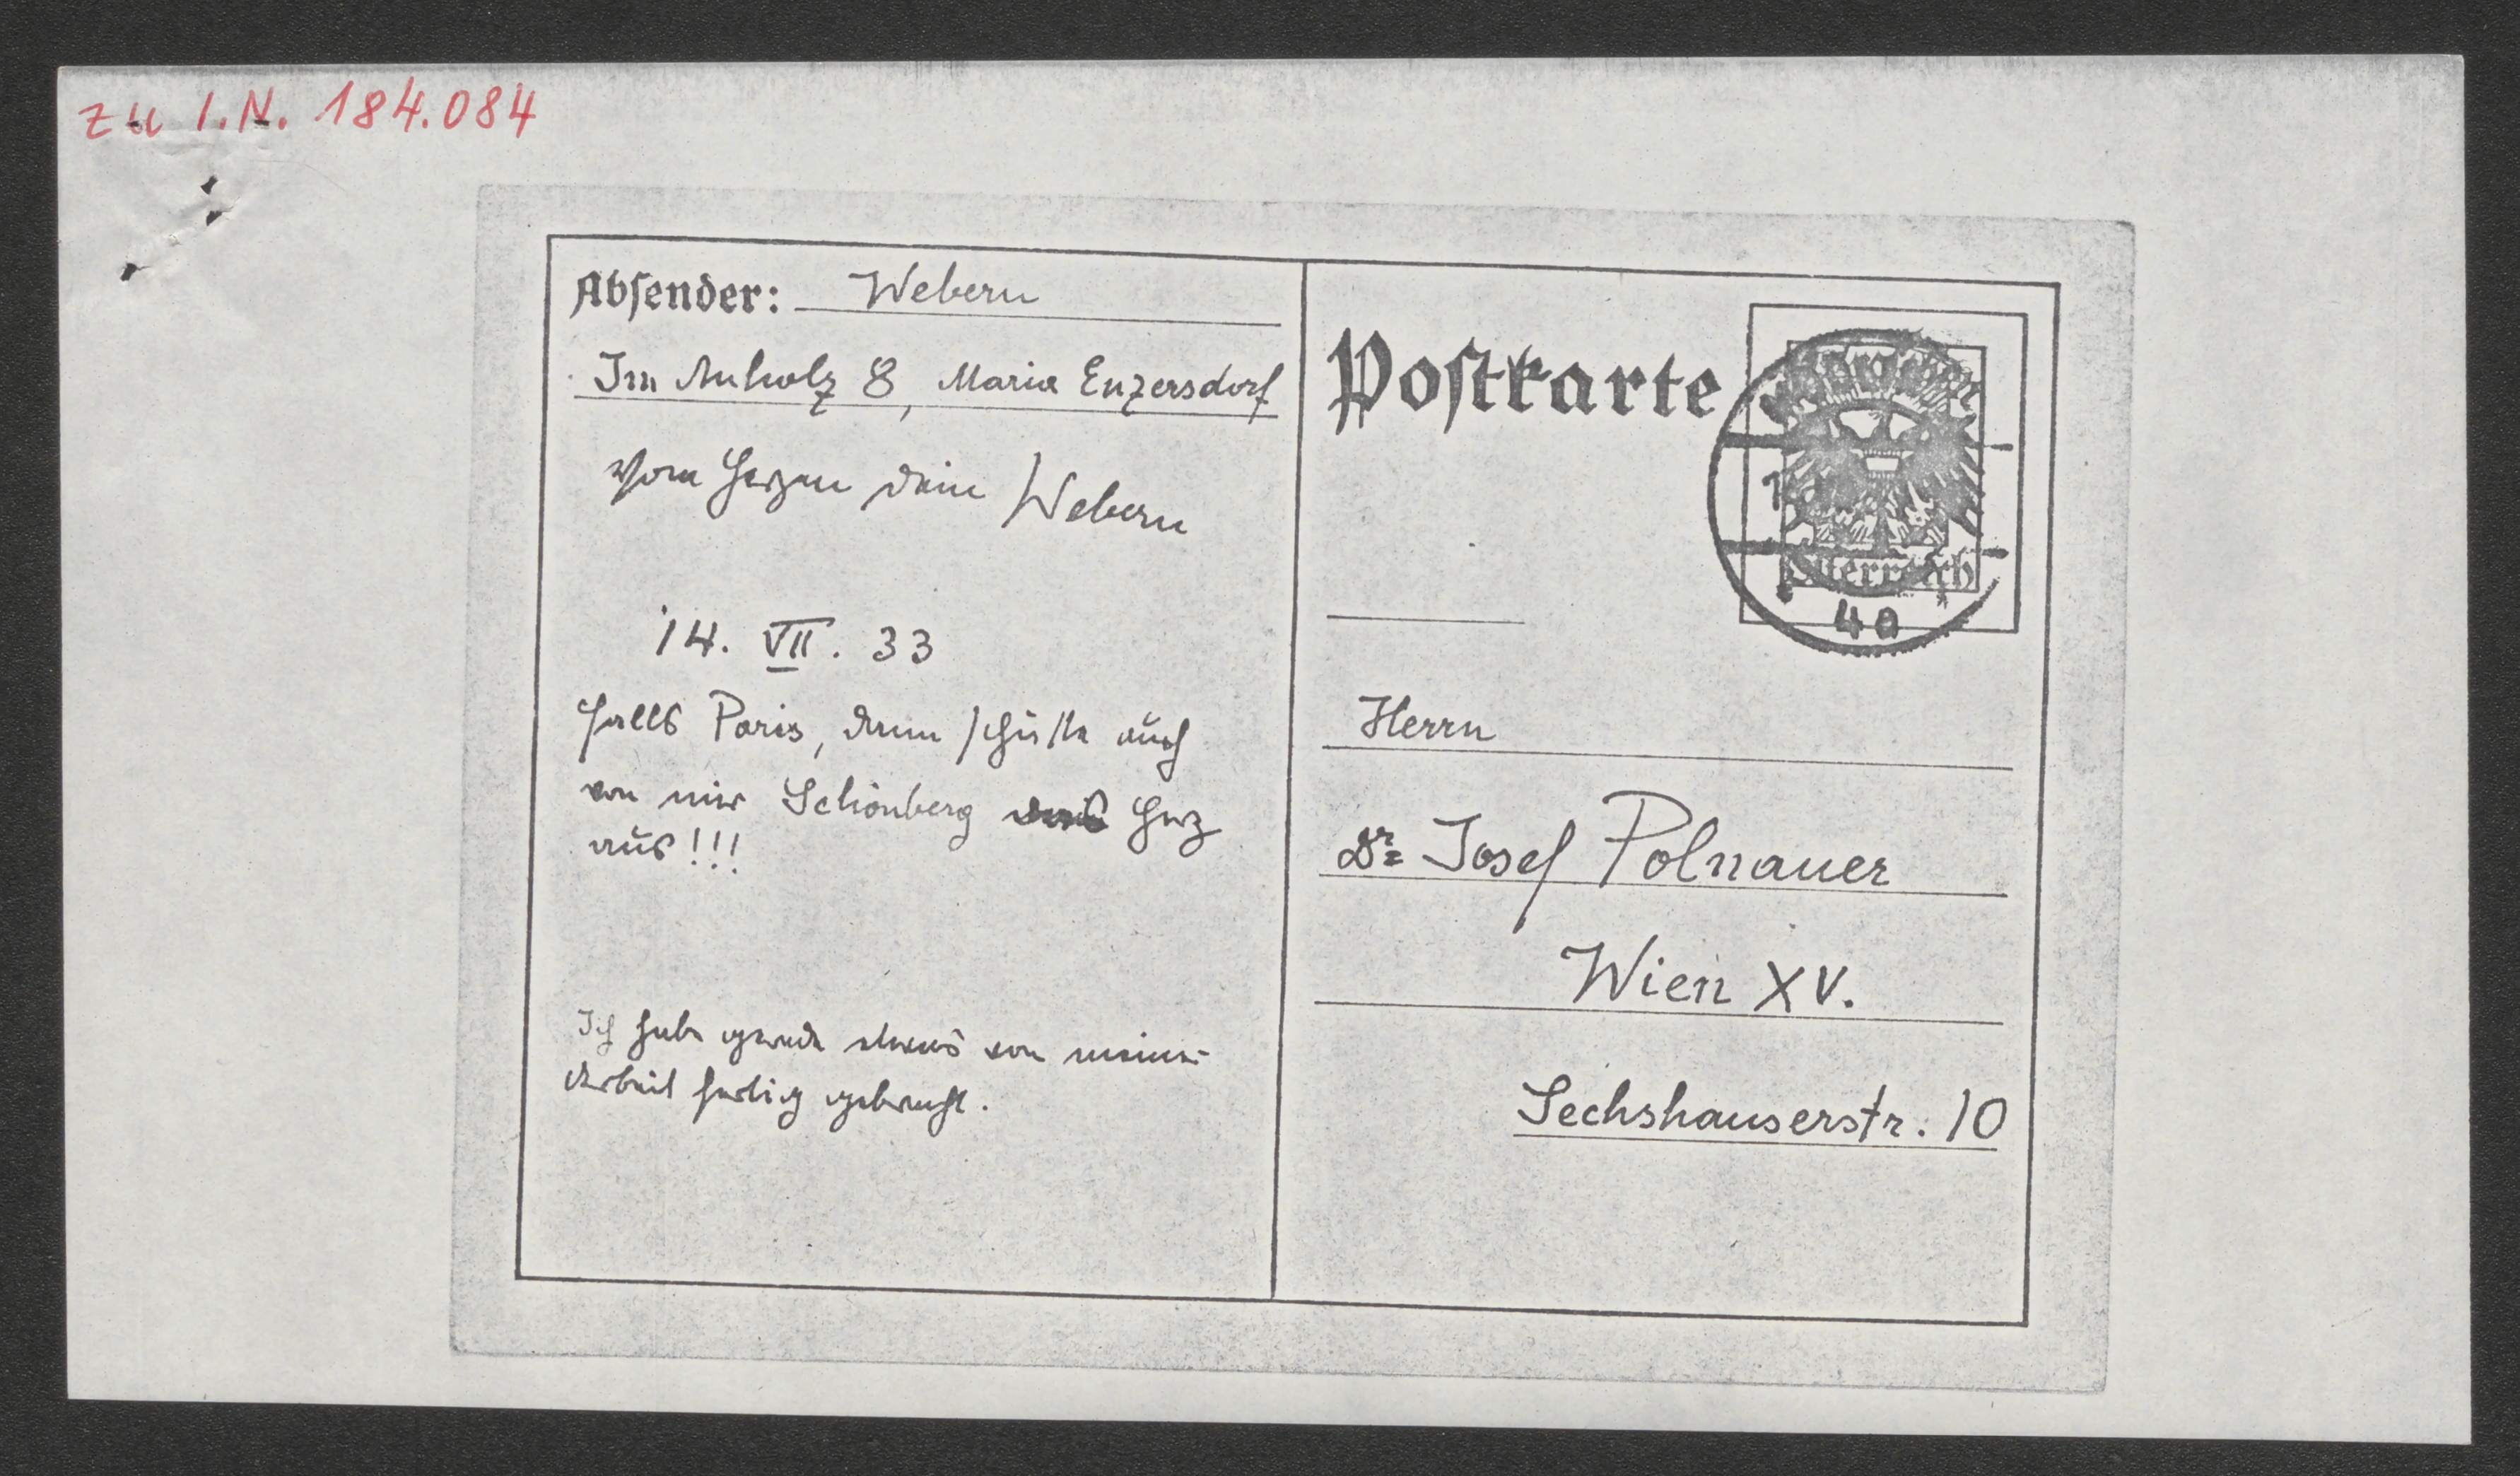 zu I.N. 184.084
Absender: Webern
Im Auholz 8, Maria Enzersdorf
Von Herzen Dein Webern
14. VII. 33
Falls Paris, dann schütte auch
von mir Schönberg das Herz
aus!!!
Ich habe gerade etwas von meiner
Arbeit fertig gebracht.
Postkarte
Österreich
40
Herrn
Dr. Josef Polnauer
Wien XV.
Sechshauserstr. 10